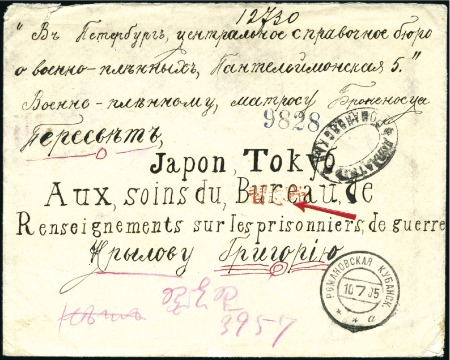 12730
"Въ Петербургъ, центральное справочное бюро
о военно-плѣнныхъ, Пантелеймонская 5."
Военно-плѣнному, матросу Броненосца
9828
Пересвѣтъ,
Japon, Tokyo
Aux, soins du, Bureau, de
Renseignements sur les prisonniers, de guerre
Крылову Григорію
РОМАНОВСКАЯ КУБАНСК.
10 7 05
а
3957